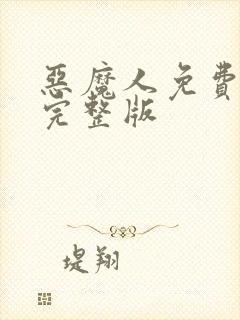 惡魔人免費
完整版
堤翔